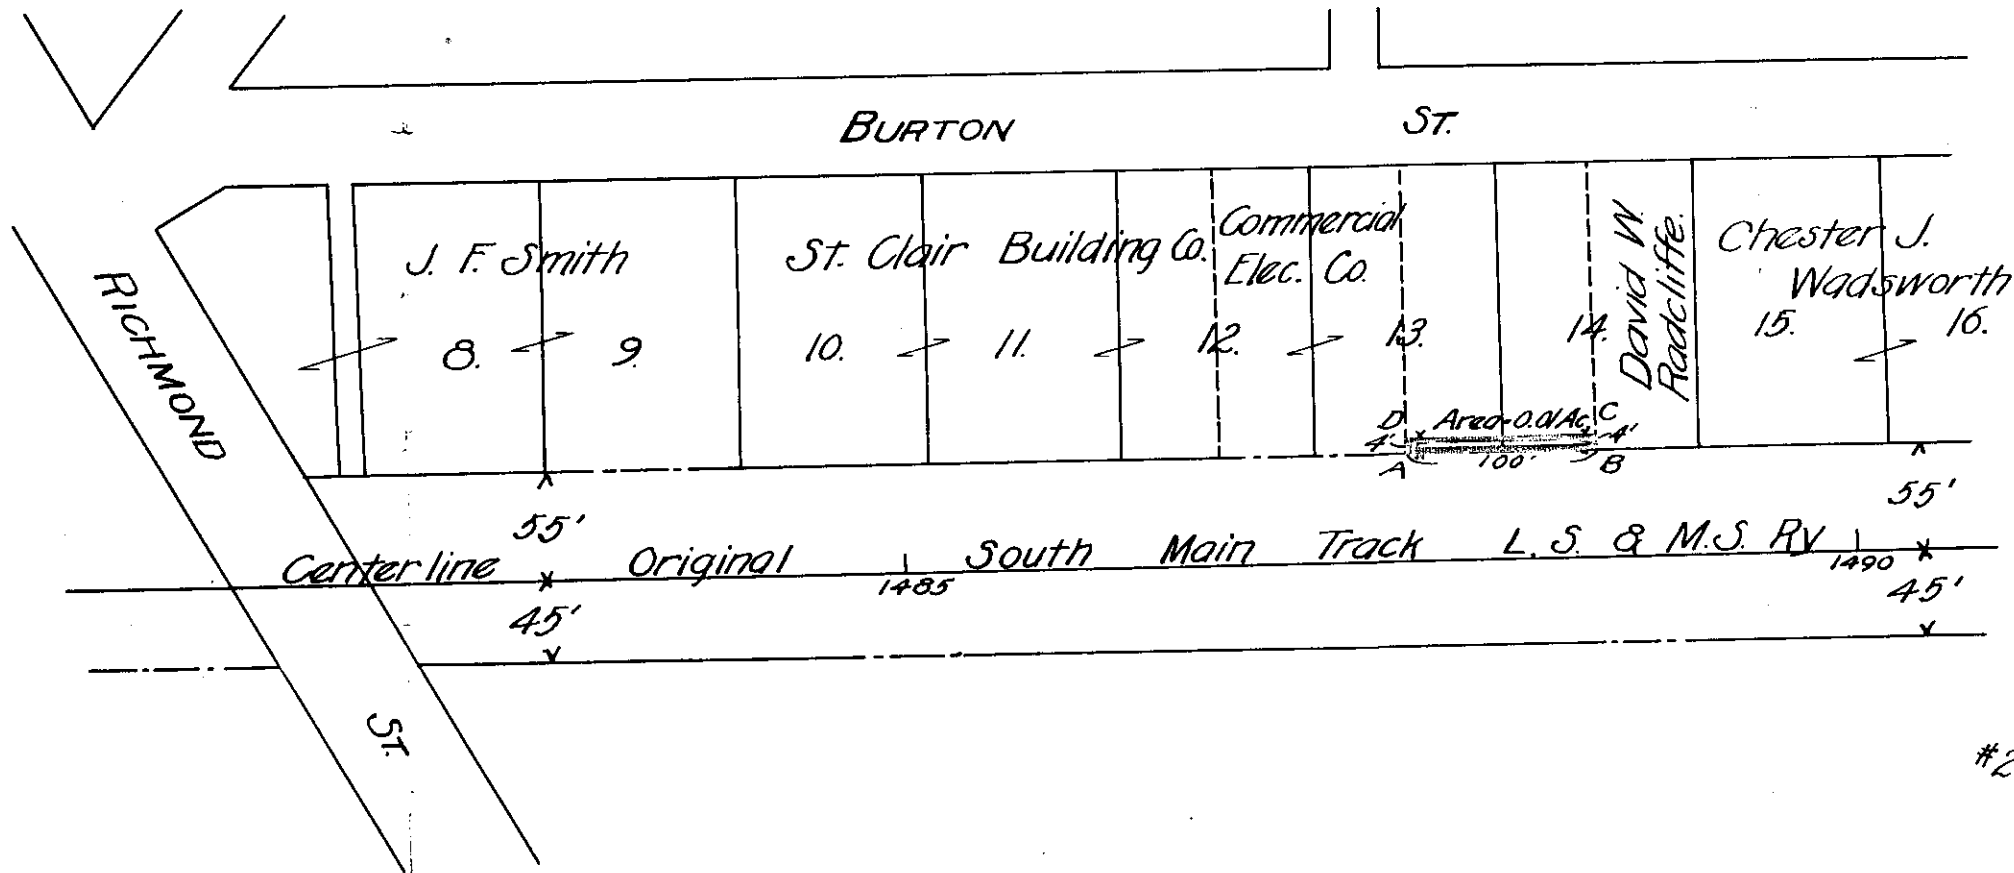 BURTON ST.
RICHMOND ST.
J. F. Smith
St. Clair Building Co.
Commercial
Elec. Co.
David W.
Radcliffe.
Chester J.
Wadsworth
8.
9.
10.
11.
12.
13.
14.
15.
16.
D Area-0.01 Ac. C
4' 4'
A 100' B
55'
55'
Center line Original South Main Track L. S. & M.S. Ry
1485
1490
45'
45'
#2